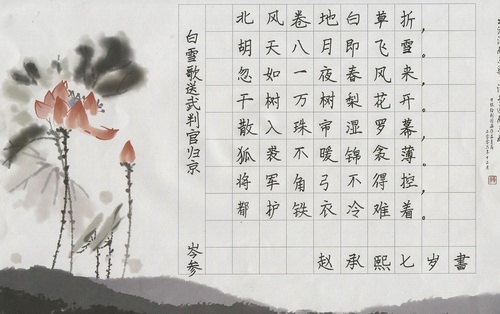 白雪歌送武判官归京
岑参
北风卷地白草折，
胡天八月即飞雪。
忽如一夜春风来，
千树万树梨花开。
散入珠帘湿罗幕，
狐裘不暖锦衾薄。
将军角弓不得控，
都护铁衣冷难着。
赵承熙七岁书